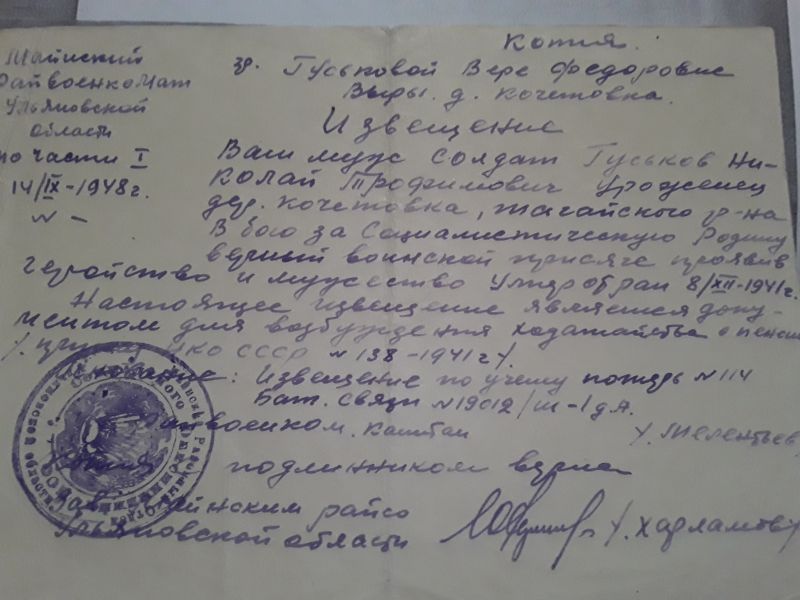 Копия.
Майнский
Райвоенкомат
Ульяновской
области
по части I
14/IX-1948г.
№ —
гр. Гуськовой Вере Федоровне
Выры. д. Кочетовка.
Извещение
Ваш муус солдат Гуськов Ни-
колай Трофимович уроженец
дер. Кочетовка, Тагайского р-на
В бою за Социалистическую Родину
верный воинской присяге проявив
геройство и муусество умер от ран 8/XII-1941г.
Настоящее извещение является доку-
ментом для возбуждения ходатайства о пенсии
НКО СССР № 138-1941г/.
: Извещение по учету потерь № 114
Бат. связи № 19012/
Райвоенком. Капитан /. Мелентьев
подлинником верна
Зав. Майнским райсо
Ульяновской области
/. Харламов/